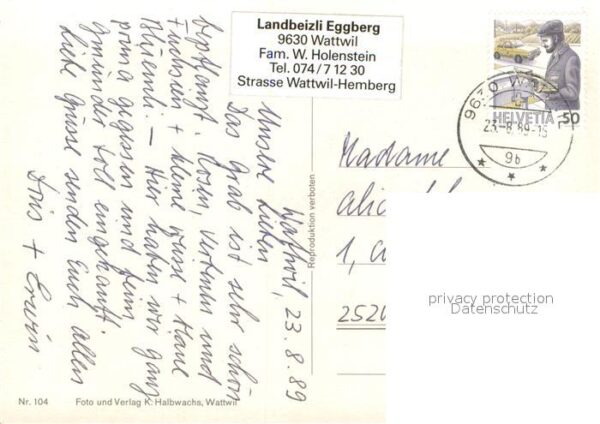 Landbeizli Eggberg
9630 Wattwil
Fam. W. Holenstein
Tel. 074/7 12 30
Strasse Wattwil-Hemberg
HELVETIA 50
9630 WAT
23.-8.89-15
9b
Wattwil, 23.8.89
Unsere Lieben
Das Grab ist sehr schön
bepflanzt. Rosen, und
Fuchsien + kleine weisse + blaue
Blüemli. – Hier haben wir ganz
prima gegessen und fein
eingekauft.
Liebe Grüsse senden Euch allen
Doris + Erwin
Reproduktion verboten
Madame
1,
2520
privacy protection
Datenschutz
Nr. 104
Foto und Verlag K. Halbwachs, Wattwil